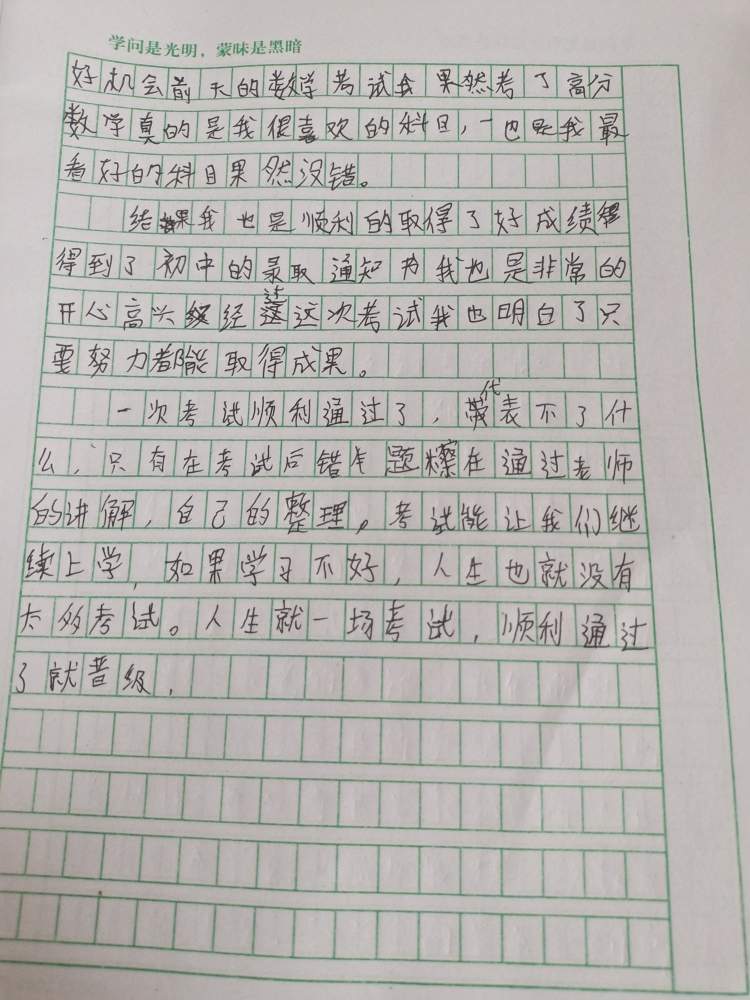 学问是光明，蒙昧是黑暗
好机会前天的数学考试我果然考了高分
数学真的是我很喜欢的科目，也是我最
看好的科目果然没错。
结果我也是顺利的取得了好成绩
得到了初中的录取通知书我也是非常的
开心高兴经过这次考试我也明白了只
要努力都能取得成果。
一次考试顺利通过了，代表不了什
么，只有在考试后错题在通过老师
的讲解，自己的整理。考试能让我们继
续上学，如果学习不好，人生也就没有
太多考试。人生就一场考试，顺利通过
了就晋级，